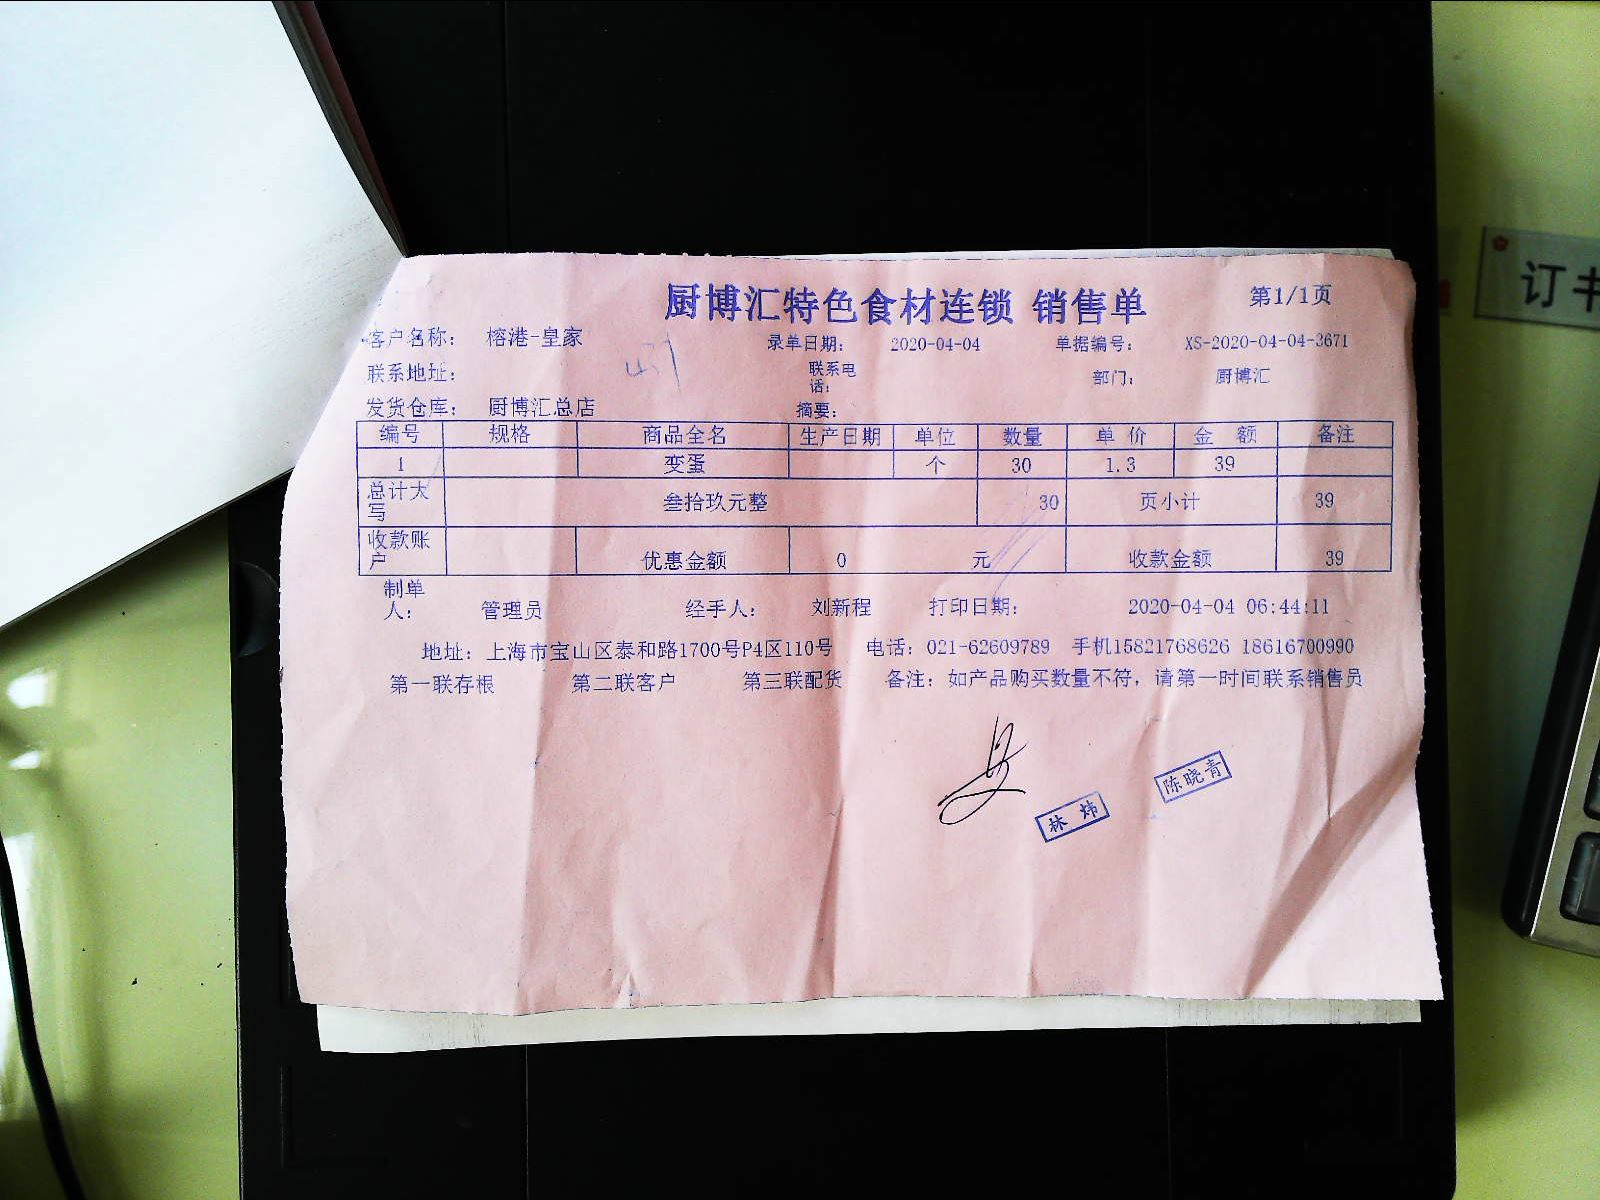 厨博汇特色食材连锁 销售单 第1/1页
客户名称： 榕港-皇家 录单日期： 2020-04-04 单据编号： XS-2020-04-04-3671
联系地址： 联系电话： 部门： 厨博汇
发货仓库： 厨博汇总店 摘要：
编号 规格 商品全名 生产日期 单位 数量 单价 金额 备注
1 变蛋 个 30 1.3 39
总计大写 叁拾玖元整 30 页小计 39
收款账户 优惠金额 0 元 收款金额 39
制单人： 管理员 经手人： 刘新程 打印日期： 2020-04-04 06:44:11
地址：上海市宝山区泰和路1700号P4区110号 电话：021-62609789 手机15821768626 18616700990
第一联存根 第二联客户 第三联配货 备注：如产品购买数量不符，请第一时间联系销售员
陈晓青
林炜
订书